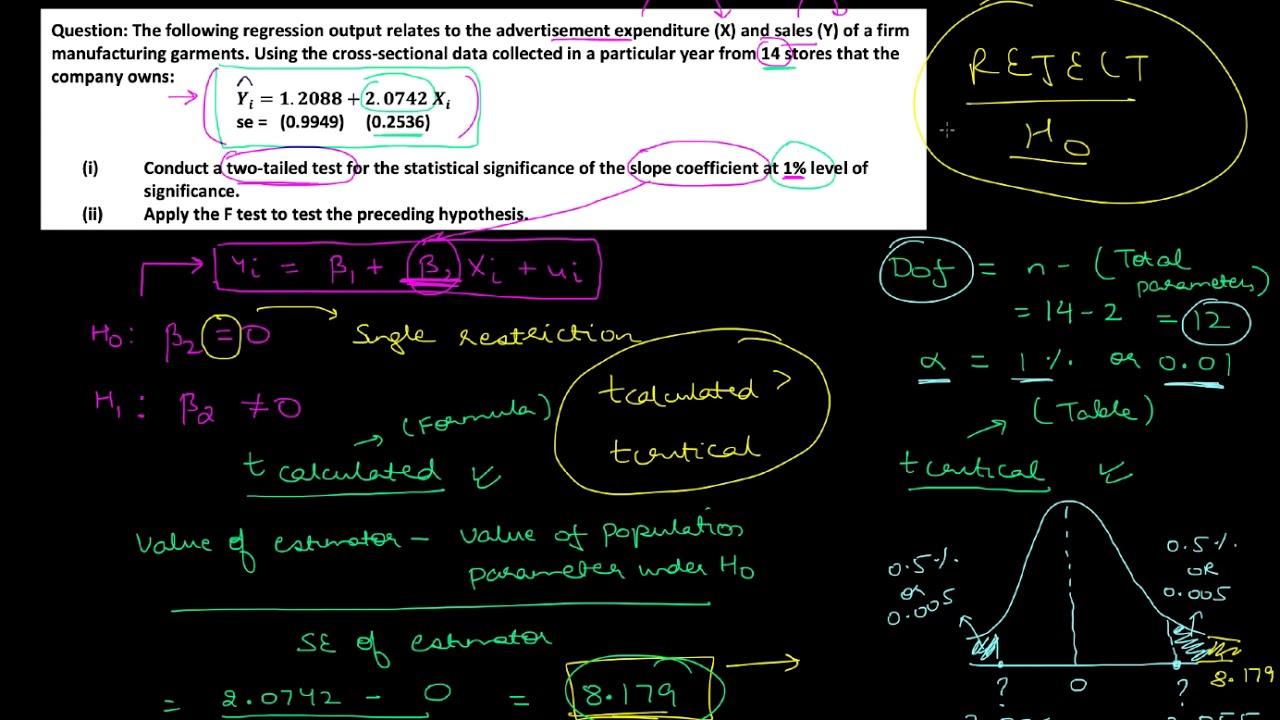 Question: The following regression output relates to the advertisement expenditure (X) and sales (Y) of a firm
manufacturing garments. Using the cross-sectional data collected in a particular year from 14 stores that the
company owns:
Ŷᵢ = 1.2088 + 2.0742 Xᵢ
se = (0.9949) (0.2536)
(i) Conduct a two-tailed test for the statistical significance of the slope coefficient at 1% level of
significance.
(ii) Apply the F test to test the preceding hypothesis.
REJECT
H₀
Yi = β₁ + β₂ Xi + ui
H₀: β₂ = 0
Single restriction
H₁: β₂ ≠ 0
tcalculated >
tcritical
(Formula)
t calculated
Value of estimator – Value of population
parameter under H₀
SE of estimator
= 2.0742 - 0 = 8.179
Dof = n - (Total
parameters)
= 14 - 2 = 12
α = 1 %. or 0.01
(Table)
tcritical
0.5%.
or
0.005
0.5%.
OR
0.005
? 0 ? 8.179